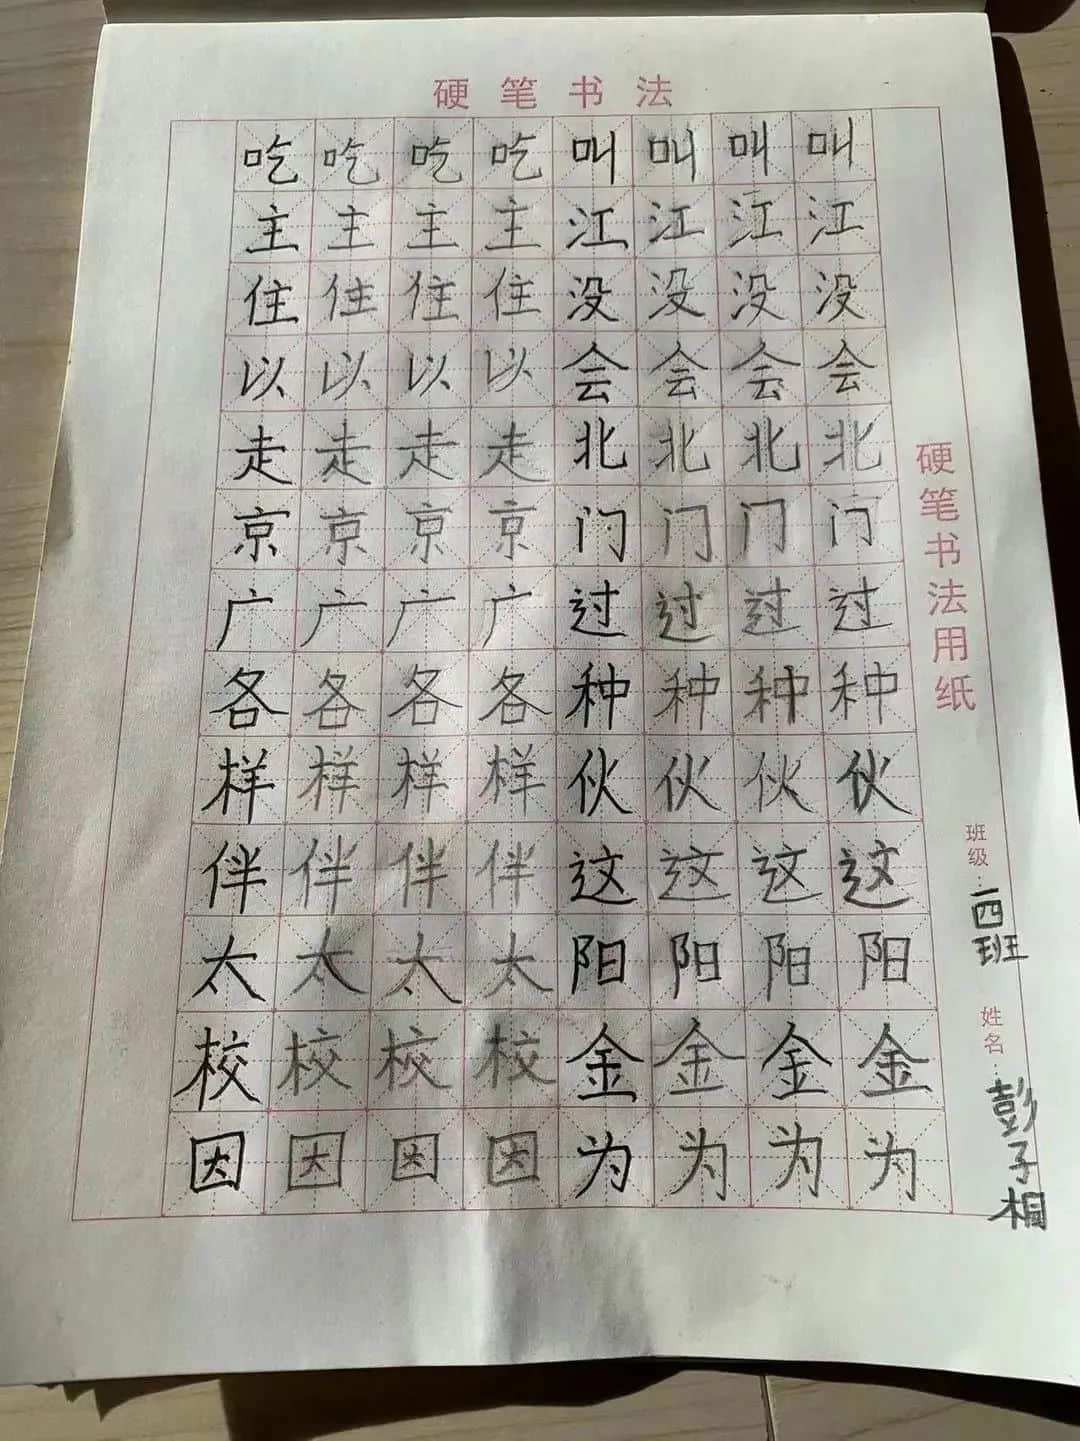 硬笔书法
吃吃吃吃叫叫叫叫
主主主主江江江江
住住住住没没没没
以以以以会会会会
走走走走北北北北
京京京京门门门门
广广广广过过过过
各各各各种种种种
样样样样伙伙伙伙
伴伴伴伴这这这这
太太太太阳阳阳阳
校校校校金金金金
因因因因为为为为
硬笔书法用纸
班级:一四班
姓名:彭子桐